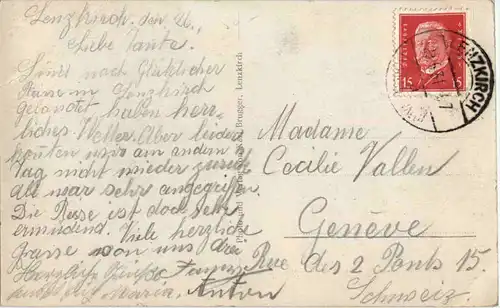 Lenzkirch, den 26.,
Liebe Tante.
Sind nach Glücklicher
Reise in Lenzkirch
gelandet haben herr-
liches Wetter. Aber leider
konten wir am andern
Tag nicht wieder zurück
all war sehr angegriffen.
Die Reise ist doch sehr
ermüdend. Viele herzliche
grüsse von uns drei
Herzliche Grüsse
Maria. Anton
Brugger, Lenzkirch
15
15
LENZKIRCH
Madame
Cecilie Vallen
Genève
Rue des 2 Ponts 15.
Schweiz.